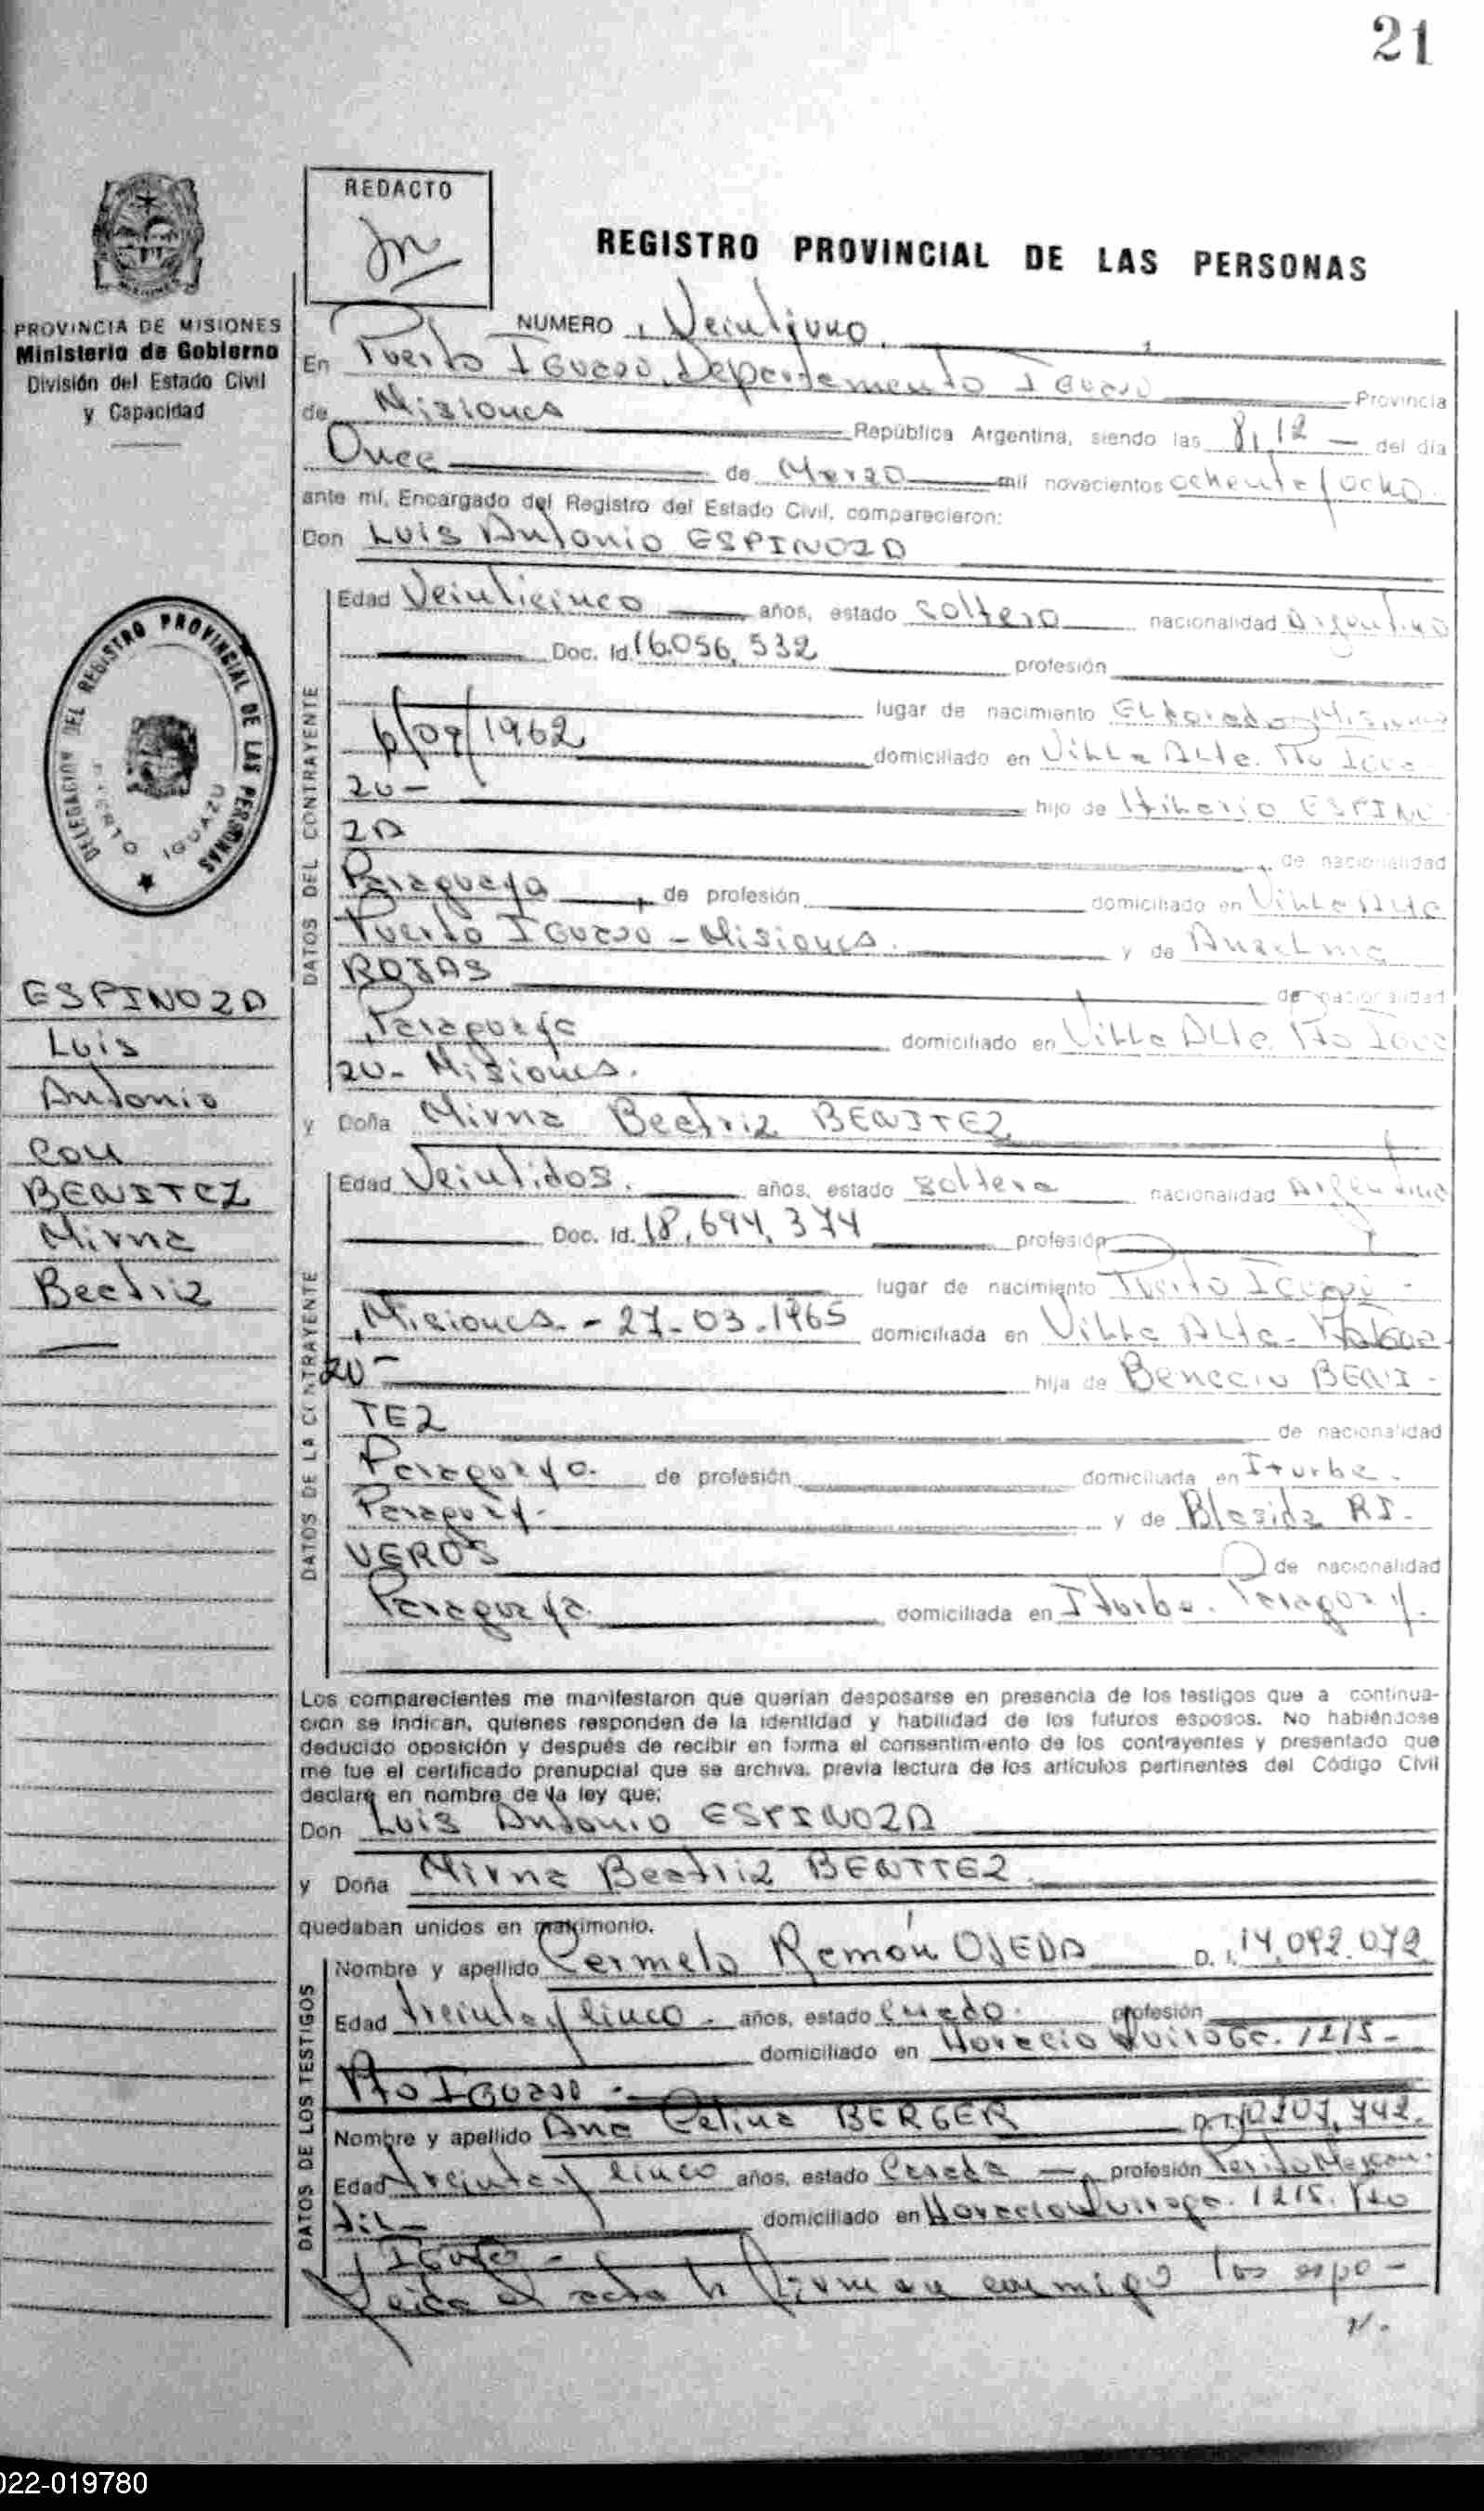 21
REDACTO
REGISTRO PROVINCIAL DE LAS PERSONAS
PROVINCIA DE MISIONES
Ministerio de Gobierno
División del Estado Civil
y Capacidad
NUMERO Veintiuno
En Puerto Iguazu, Departamento Iguazu Provincia
de Misiones República Argentina, siendo las 8,12 del día
Once de Marzo mil novecientos ochenta y ocho.
ante mí, Encargado del Registro del Estado Civil, comparecieron:
Don Luis Antonio ESPINOZA
DATOS DEL CONTRAYENTE
Edad Veinticinco años, estado soltero nacionalidad Argentino
Doc. Id. 16.056.532 profesión
lugar de nacimiento Eldorado-Misiones
6/09/1962 domiciliado en Villa Alta. Pto Igua-
zu- hijo de ESPINO
ZA de nacionalidad
Paraguaya, de profesión domiciliado en Villa Alta
Puerto Iguazu - Misiones. y de Anselma
ROJAS de nacionalidad
Paraguaya domiciliado en Villa Alta Pto Igua
zu- Misiones.
DELEGACION DEL REGISTRO PROVINCIAL DE LAS PERSONAS
PUERTO IGUAZU
ESPINOZA
Luis
Antonio
Con
BENITEZ
Mirna
Beatriz
y Doña Mirna Beatriz BENITEZ
DATOS DE LA CONTRAYENTE
Edad Veintidos. años, estado soltera nacionalidad Argentina
Doc. Id. 18.694.374 profesión
lugar de nacimiento Puerto Iguazu -
Misiones - 27-03-1965 domiciliada en Villa Alta- Pto Igua-
zu- hija de BENI-
TEZ de nacionalidad
Paraguaya. de profesión domiciliada en Iturbe.
Paraguay- y de Blasida RI-
VEROS de nacionalidad
Paraguaya. domiciliada en Iturbe. Paraguay.
Los comparecientes me manifestaron que querían desposarse en presencia de los testigos que a continua-
ción se indican, quienes responden de la identidad y habilidad de los futuros esposos. No habiéndose
deducido oposición y después de recibir en forma el consentimiento de los contrayentes y presentado que
me fue el certificado prenupcial que se archiva, previa lectura de los artículos pertinentes del Código Civil
declaré en nombre de la ley que:
Don Luis Antonio ESPINOZA
y Doña Mirna Beatriz BENITEZ
quedaban unidos en matrimonio.
DATOS DE LOS TESTIGOS
Nombre y apellido Carmelo Ramón OJEDA D.I. 14.092.072
Edad treinta y cinco. años, estado Casado. profesión
domiciliado en Horacio Quiroga. 1215-
Pto Iguazu-
Nombre y apellido Ana Celina BERGER
Edad treinta y cinco años, estado Casada profesión Perito Mercan-
til- domiciliado en Horacio Quiroga. 1215. Pto
Iguazu-
Leida el acta la firman conmigo los espo-
022-019780